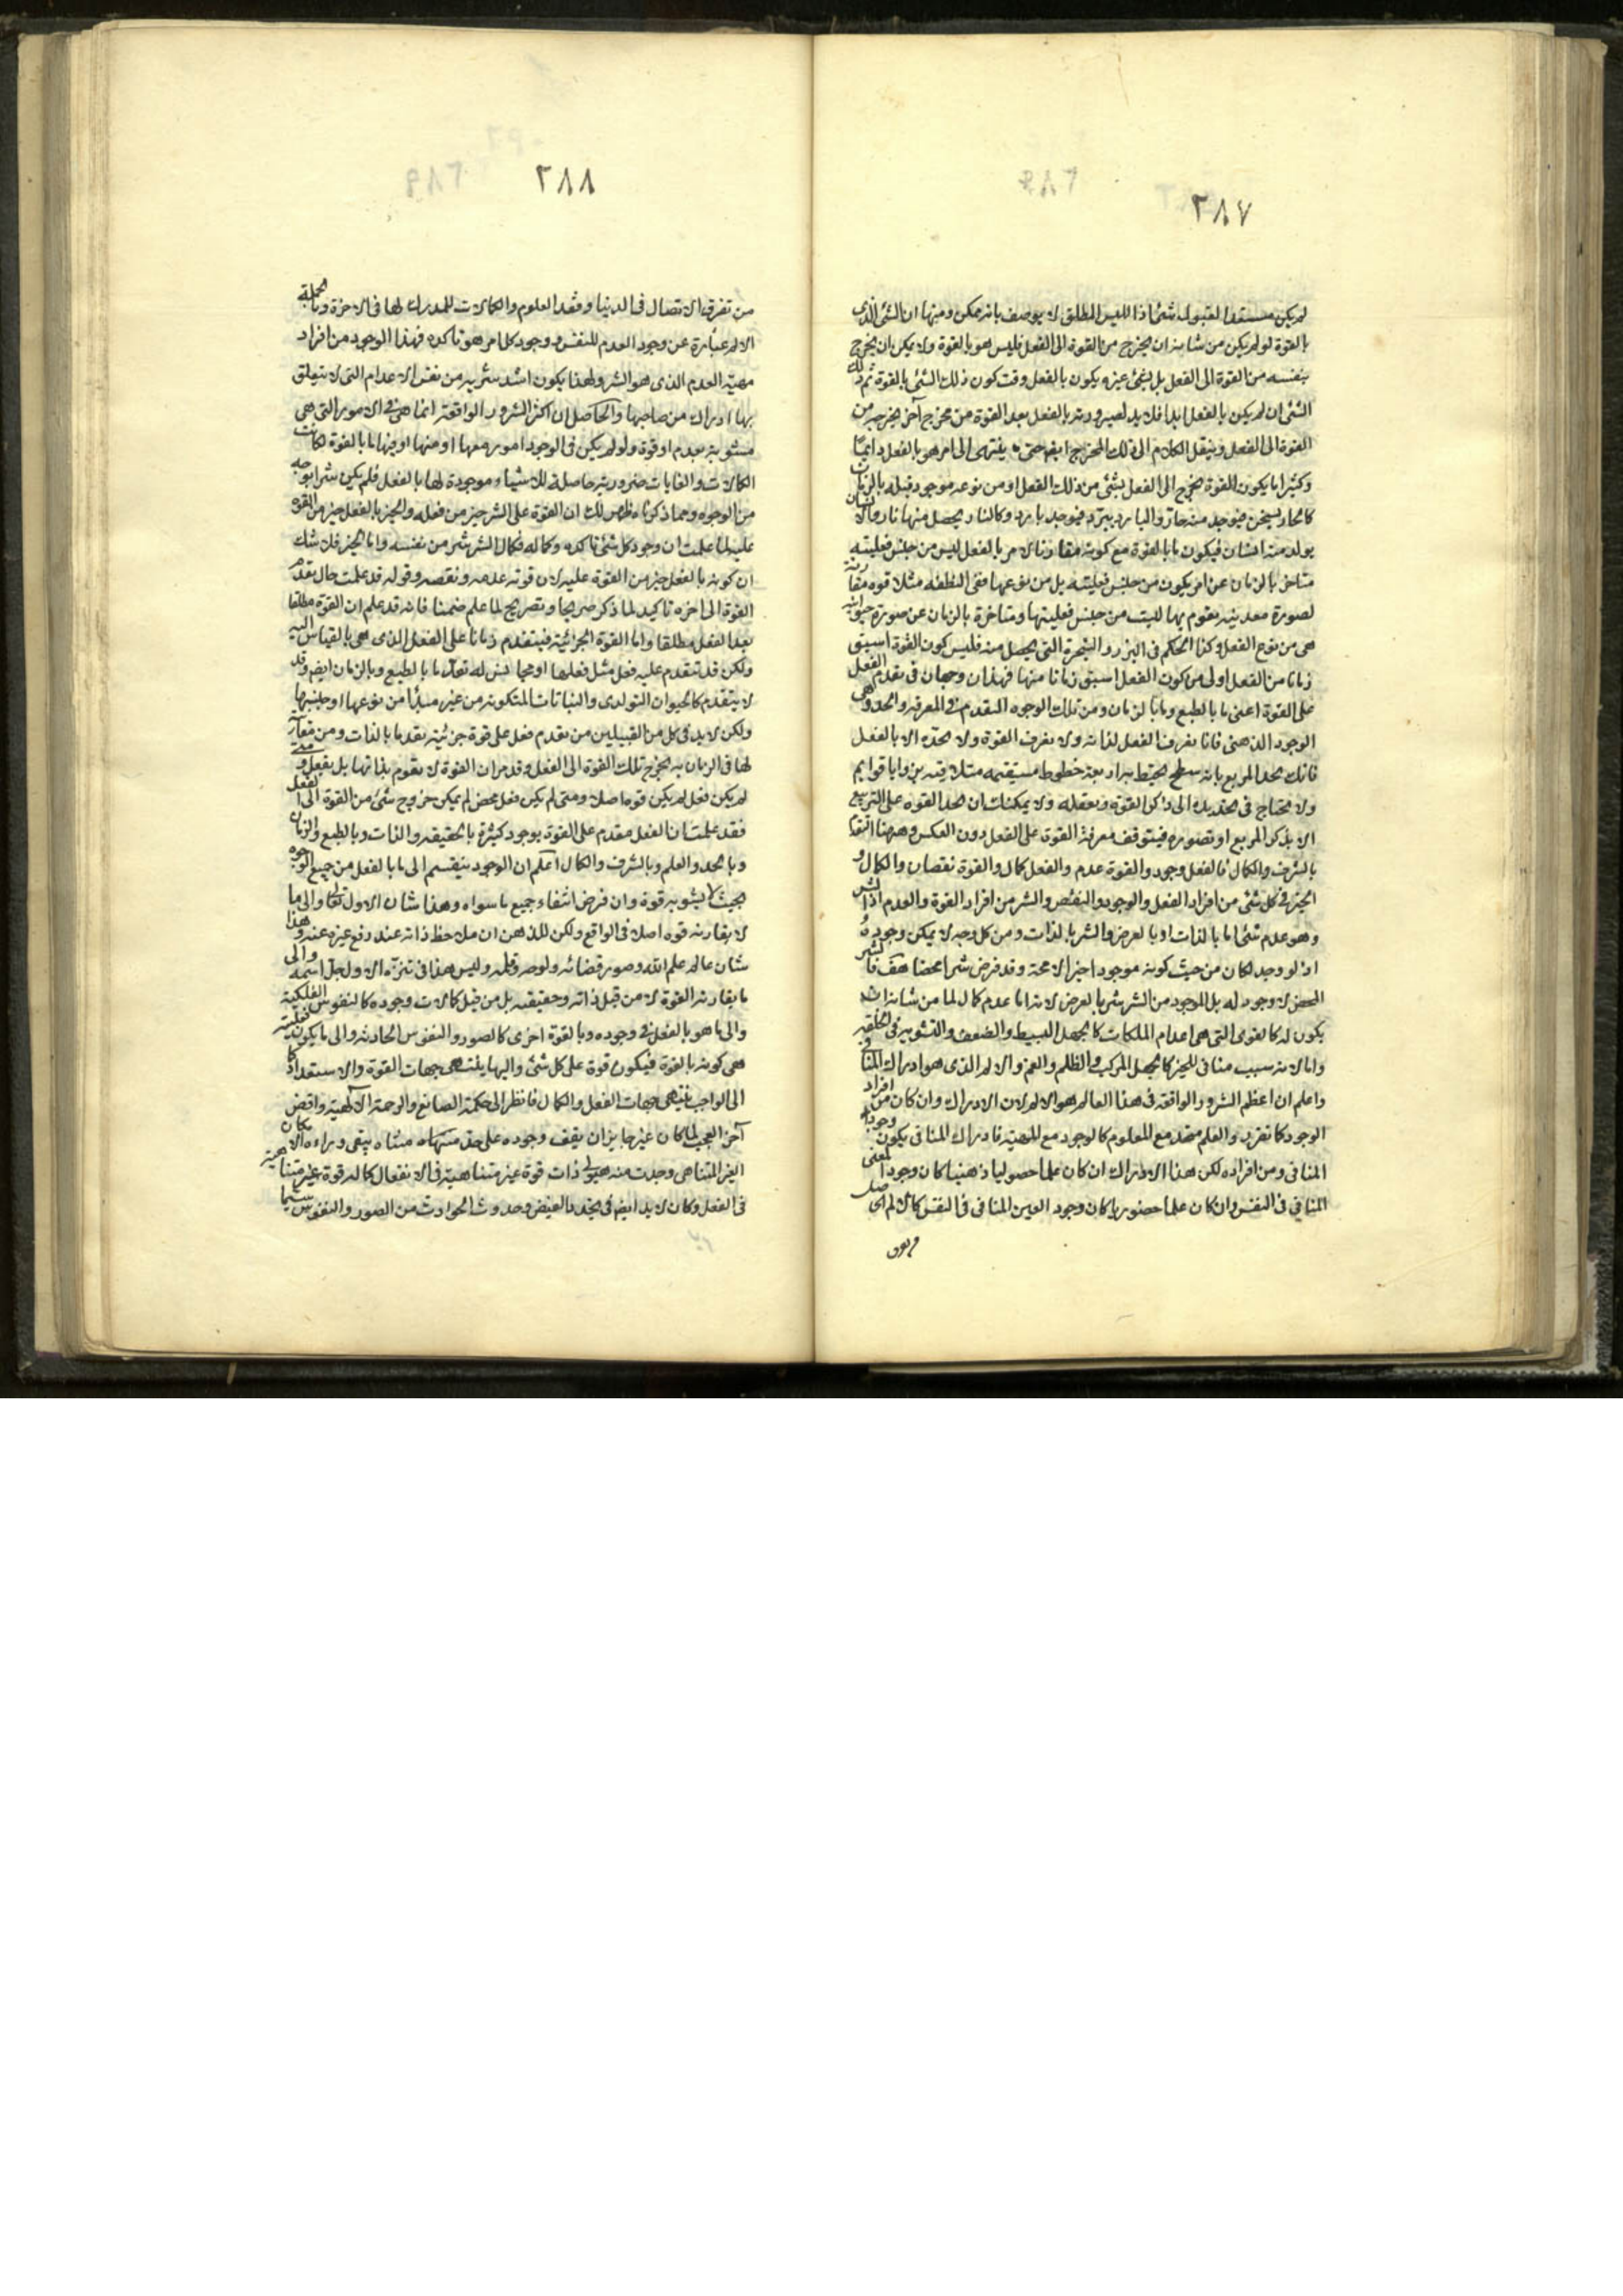 ٢٨٧
لم يكن مستعدا لقبوله شئ اذا لليس المطلق لا يوصف بانه ممكن ومنها ان الشئ الذى
بالقوة لو لم يكن من شانه ان يخرج من القوة الى الفعل فليس هو بالقوة ولا يمكن ان يخرج
بنفسه من القوة الى الفعل بل بشئ غيره يكون بالفعل وقت كون ذلك الشئ بالقوة ثم ذلك
الشئ ان لم يكن بالفعل ابدا فلا بد لصيرورته بالفعل بعد القوة من مخرج آخر يخرجه من
القوة الى الفعل وينقل الكلام الى ذلك المخرج ايضا حتى ينتهى الى امر هو بالفعل دايما
وكثيرا ما يكون القوة يخرج الى الفعل بشئ من ذلك الفعل او من نوعه موجود قبله بالزمان
كالحار يسخن فيوجد منه حار والبارد يبرد فيوجد بارد وكالنار يحصل منها نار والانسان
يولد منه انسان فيكون ما بالقوة مع كونه مقارنا لامر بالفعل ليس من جنس فعليته
متاخر بالزمان عن امر يكون من جنس فعليته بل من نوعها ففى النطفه مثلا قوه مقارنة
لصورة معدنيه يتقوم بها ليست من جنس فعليتها ومتاخرة بالزمان عن صورة حيوانيه
هى من نوع الفعل وكذا الحكم فى البزر والشجرة التى يحصل منه فليس كون القوة اسبق
زمانا من الفعل اولى من كون الفعل اسبق زمانا منها فهذان وجهان فى تقدم الفعل
على القوة اعنى ما بالطبع وما بالزمان ومن تلك الوجوه التقدم فى المعرفة والحد وهى
الوجود الذهنى فانا نعرف الفعل لذاته ولا نعرف القوة ولا نحده الا بالفعل
فانك تحد المربع بانه سطح يحيط به اربعة خطوط مستقيمه متلاقيه بزوايا قوايم
ولا تحتاج فى تحديده الى ذكر القوة وتعقله ولا يمكنك ان تحد القوه على التربيع
الا بذكر المربع او تصوره فيتوقف معرفة القوة على الفعل دون العكس وههنا التقدم
بالشرف والكمال فالفعل وجود والقوة عدم والفعل كمال والقوة نقصان والكمال و
الخير فى كل شئ من افراد الفعل والوجود والنقص والشر من افراد القوة والعدم اذ الشر
هو عدم شئ اما بالذات او بالعرض والشر بالذات ومن كل وجه لا يمكن وجوده
اذ لو وجد لكان من حيث كونه موجودا خيرا لا محة وقد فرض شرا محضا هف فالشر
المحض لا وجود له بل الموجود من الشر شر بالعرض لانه اما عدم كمال لما من شانه ان
يكون له كالقوى التى هى اعدام الملكات كالجهل البسيط والضعف والتشويه فى الخلقه
واما لانه سبب منافى للخير كالجهل المركب والظلم والغم والالم الذى هو ادراك المنافى
واعلم ان اعظم الشرور الواقعه فى هذا العالم هو الالم لان الادراك وان كان من افراد
الوجود كما تقرر والعلم متحد مع المعلوم كالوجود مع المهية فادراك المنافى يكون وجودا
المنافى ومن افراده لكن هذا الادراك ان كان علما حصوليا ذهنيا كان وجودا لمعنى
المنافى فى النفس وان كان علما حضوريا كان وجود العين المنافى فى النفس كالالم الحاصل
٢٨٨
من تفرق الاتصال فى الدنيا وفقد العلوم والكمالات للمدرك لها فى الاخرة وبالجملة
الالم عبارة عن وجود العدم للنفس ووجود كل امر هو تاكده فهذا الوجود من افراد
مهية العدم الذى هو الشر ولهذا يكون اشد شرية من نفس الاعدام التى لا يتعلق
بها ادراك من صاحبها والحاصل ان اكثر الشرور الواقعة انما هى فى الامور التى هى
مشوبة بعدم او قوة ولو لم يكن فى الوجود امور معها او منها او فيها ما بالقوة لكانت
الكمالات والغايات ضرورية حاصلة للاشياء موجودة لها بالفعل فلم يكن شر بوجه
من الوجوه ومما ذكرناه ظهر لك ان القوة على الشر خير من فعله والخير بالفعل خير من القوة
عليه لما علمت ان وجود كل شئ تاكده وكماله فكمال الشر شر من نفسه واما الخير فلا شك
ان كونه بالفعل خير من القوة عليه لان قوته عدمه ونقصه وقوله قد علمت حال تقدم
القوة الى اخره تاكيد لما ذكر صريحا وتصريح لما علم ضمنا فانه قد علم ان القوة مطلقا
بعد الفعل مطلقا واما القوة الجزائية فيتقدم زمانا على الفعل الذى هى بالقياس اليه
ولكن قد تتقدم عليه فعل مثل فعلها او مجانس له تقدما بالطبع وبالزمان ايضا وقد
لا يتقدم كالحيوان التولدى والنباتات المتكونه من غير مبدا من نوعها او جنسها
ولكن لا بد فى كل من القبيلين من تقدم فعل على قوة جزئية تقدما بالذات ومن مقارن
لها فى الزمان به يخرج تلك القوة الى الفعل وقد مر ان القوة لا تقوم بذاتها بل بفعل ومتى
لم يكن فعل لم يكن قوه اصلا ومتى لم يكن فعل محض لم يمكن خروج شئ من القوة الى الفعل
فقد علمت ان الفعل مقدم على القوة بوجوه كثيرة بالحقيقه والذات وبالطبع والزمان
وبالحد والعلم وبالشرف والكمال اعلم ان الوجود ينقسم الى ما بالفعل من جميع الوجوه
بحيث لا يشوبه قوة وان فرض انتفاء جميع ما سواه وهذا شان الاول تعالى والى ما
لا يقارنه قوه اصلا فى الواقع ولكن للذهن ان ملاحظ ذاته عند رفع غيره عنه وهذا
شان عالم علم الله وصور قضائه ولوحه وقلمه وليس هذا فى تنزه الاول جل اسمه والى
ما يقارنه القوة لا من قبل ذاته وحقيقته بل من قبل كمالات وجوده كالنفوس الفلكية
والى ما هو بالفعل فى وجوده وبالقوة اخرى كالصور والنفوس الحادثه والى ما يكون فعليته
هى كونه بالقوة فيكون قوة على كل شئ واليها ينتهى جهات القوة والاستعداد كما
الى الواجب ينتهى جهات الفعل والكمال فانظر الى حكمة الصانع والرحمة الالهية واقض
آخر العجب لما كان غير جايز ان يقف وجوده على حد متناه يبقى وراءه الامكان
الغير المتناهى وجدت منه هيولى ذات قوة غير متناهية فى الانفعال كما له قوة غير متناهية
فى الفعل وكان لا بد ايضا فى تجدد الفيض وحدوث الحوادث من الصور والنفوس سيما